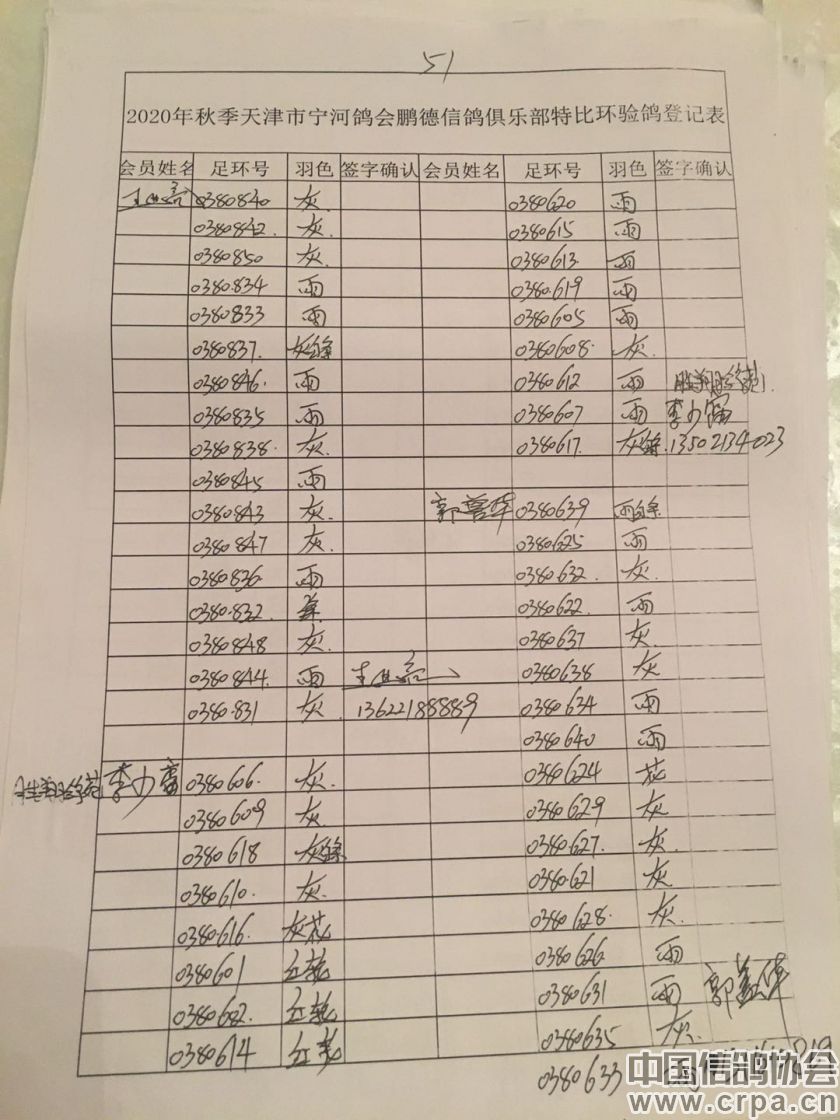 51
2020年秋季天津市宁河鸽会鹏德信鸽俱乐部特比环验鸽登记表
会员姓名 足环号 羽色 签字确认 会员姓名 足环号 羽色 签字确认
0380840 灰 0380620 雨
0380842. 灰. 0380615 雨
0380850 灰. 0380613. 雨
0380834 雨 0380.619 雨
0380833 雨 0380605 雨
0380837. 0380608. 灰.
0380846. 雨 0380612 雨
0380835 雨 0380607 雨 李少富
0380838. 灰. 0380617. 13502134023
0380845 雨
0380843 灰. 郭善华 0380639
0380847 灰. 0380625 雨
0380836. 雨 0380632. 灰.
0380832. 0380622. 雨
0380848 灰. 0380637 灰.
0380844. 雨 0380638 灰
0380831 灰. 13622188889 0380634 雨
0380640 雨
李少富 0380606. 灰. 0380624 花
0380609 灰 0380629 灰
0380618 0380627. 灰.
0380610. 灰. 0380621 灰
0380616. 灰花 0380628. 灰.
0380601 红轮 0380626 雨
0380602. 红轮 0380631 雨 郭善华
0380614 红轮 0380635 灰.
0380633 雨
中国信鸽协会
www.crpa.cn